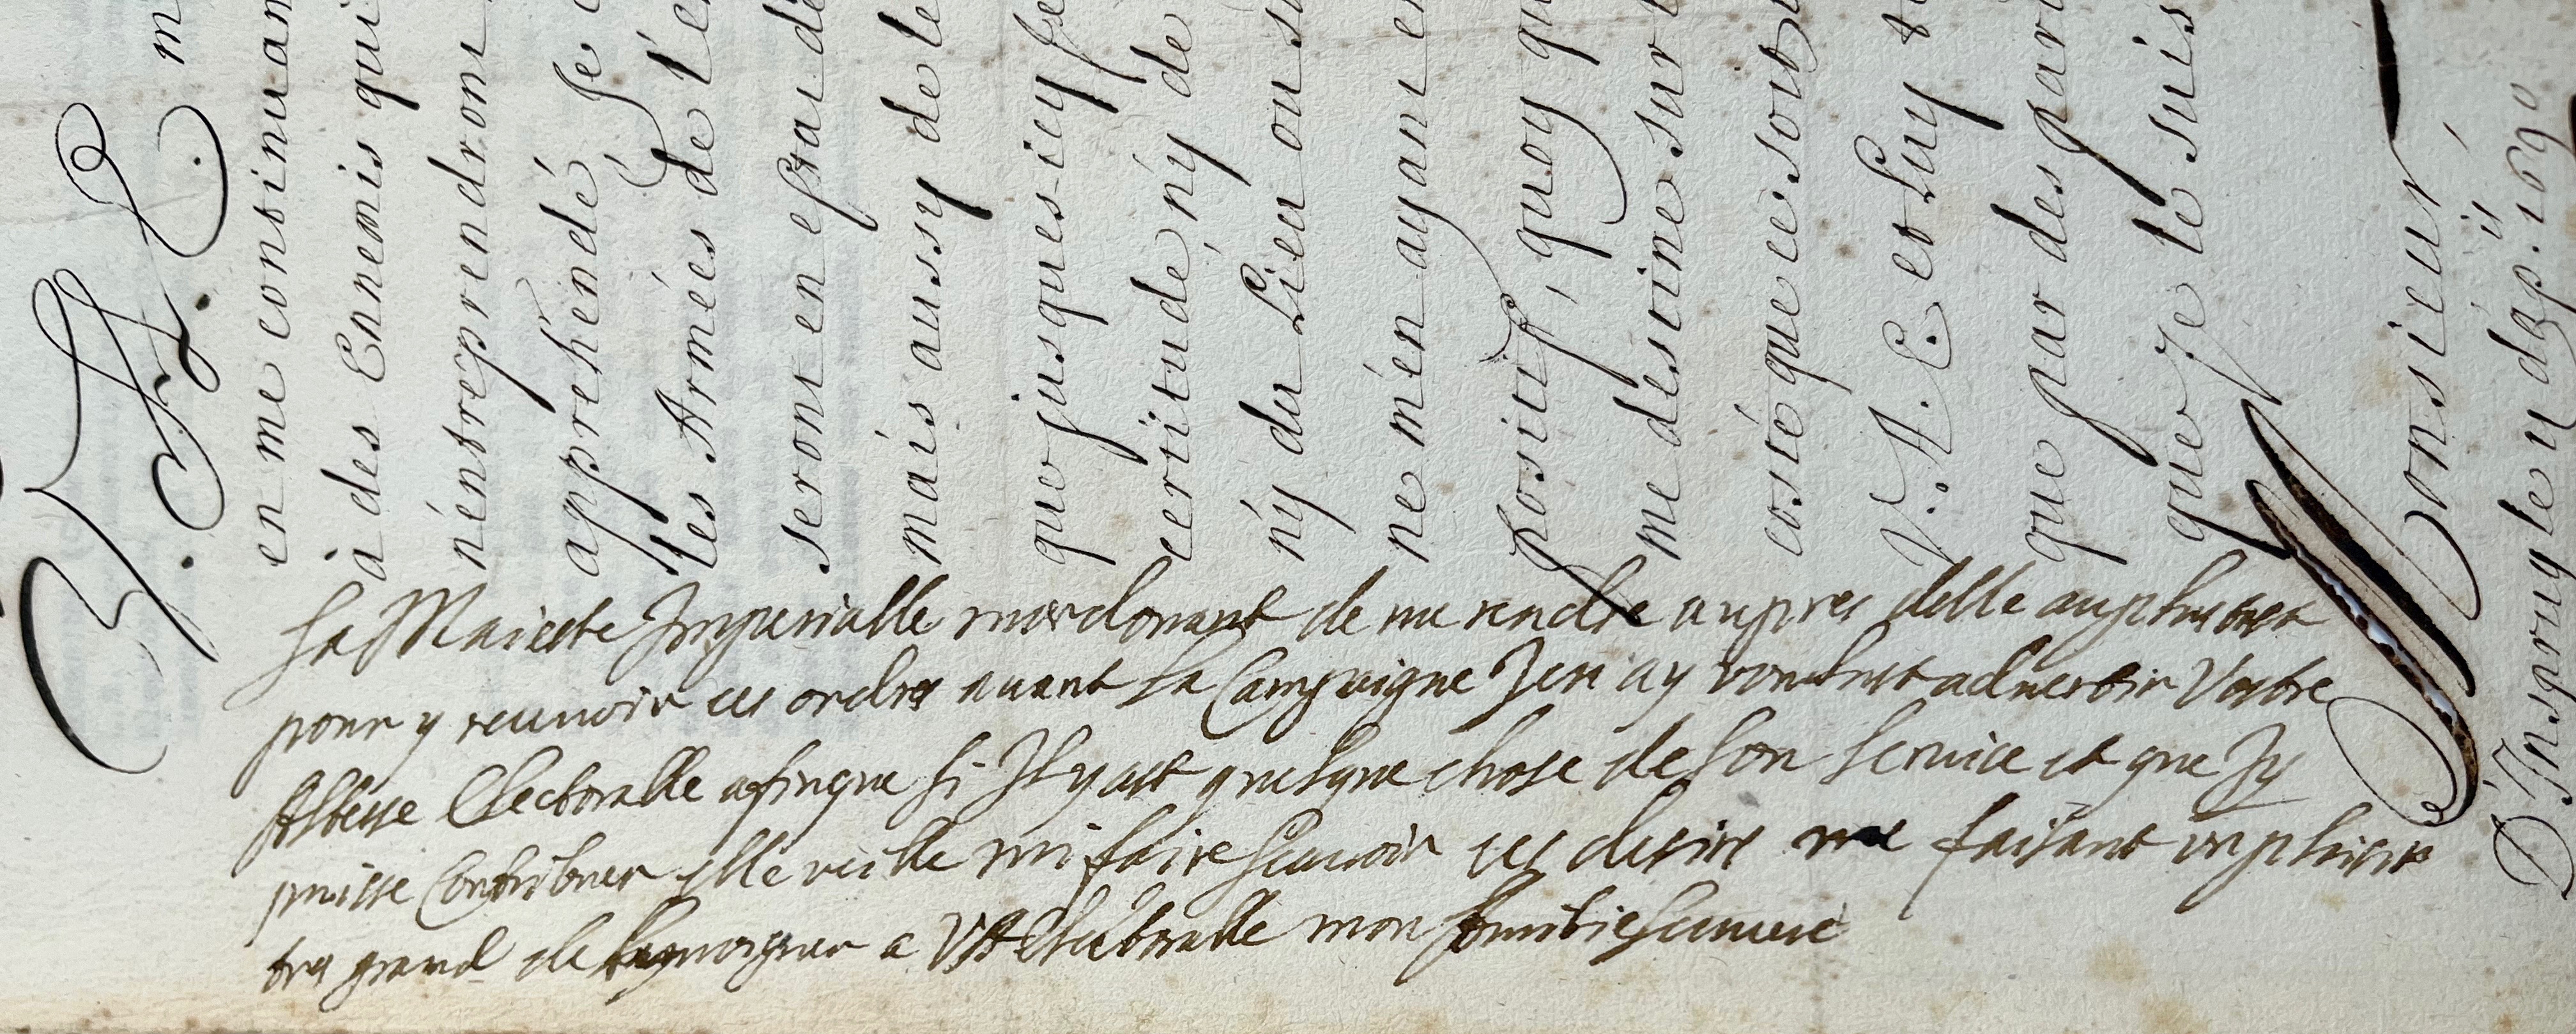 V. A. E. m
en me continuan
à des Ennemis qui
n'éntreprendront
apprehendé. Je
les Armées de l'e
seront en estat de
mais aussy de le
que jusques icy se
certitude, ny de
ny du Lieu ou s
ne m'en ayant e
positif, quoy qu
me destine sur l
costé que ce soit
V. A. E. et luy t
que par des par
que je le suis
Monsieur
D'Insprugk le 11 d'ap. 1690
Sa Maieste Imperialle mordonant de me rendre aupres delle au plustost
pour y receuoir ces ordres auant la Campaigne Jen ay voulust aduertir Vostre
Altesse Electoralle afinque si Jl y ast quelque chose de son seruice et que Jy
puisse Contribuer elle veille mi faire scauoir ces desirs me faisant un plaisir
tres grand de tesmoigner a VA Electoralle mon